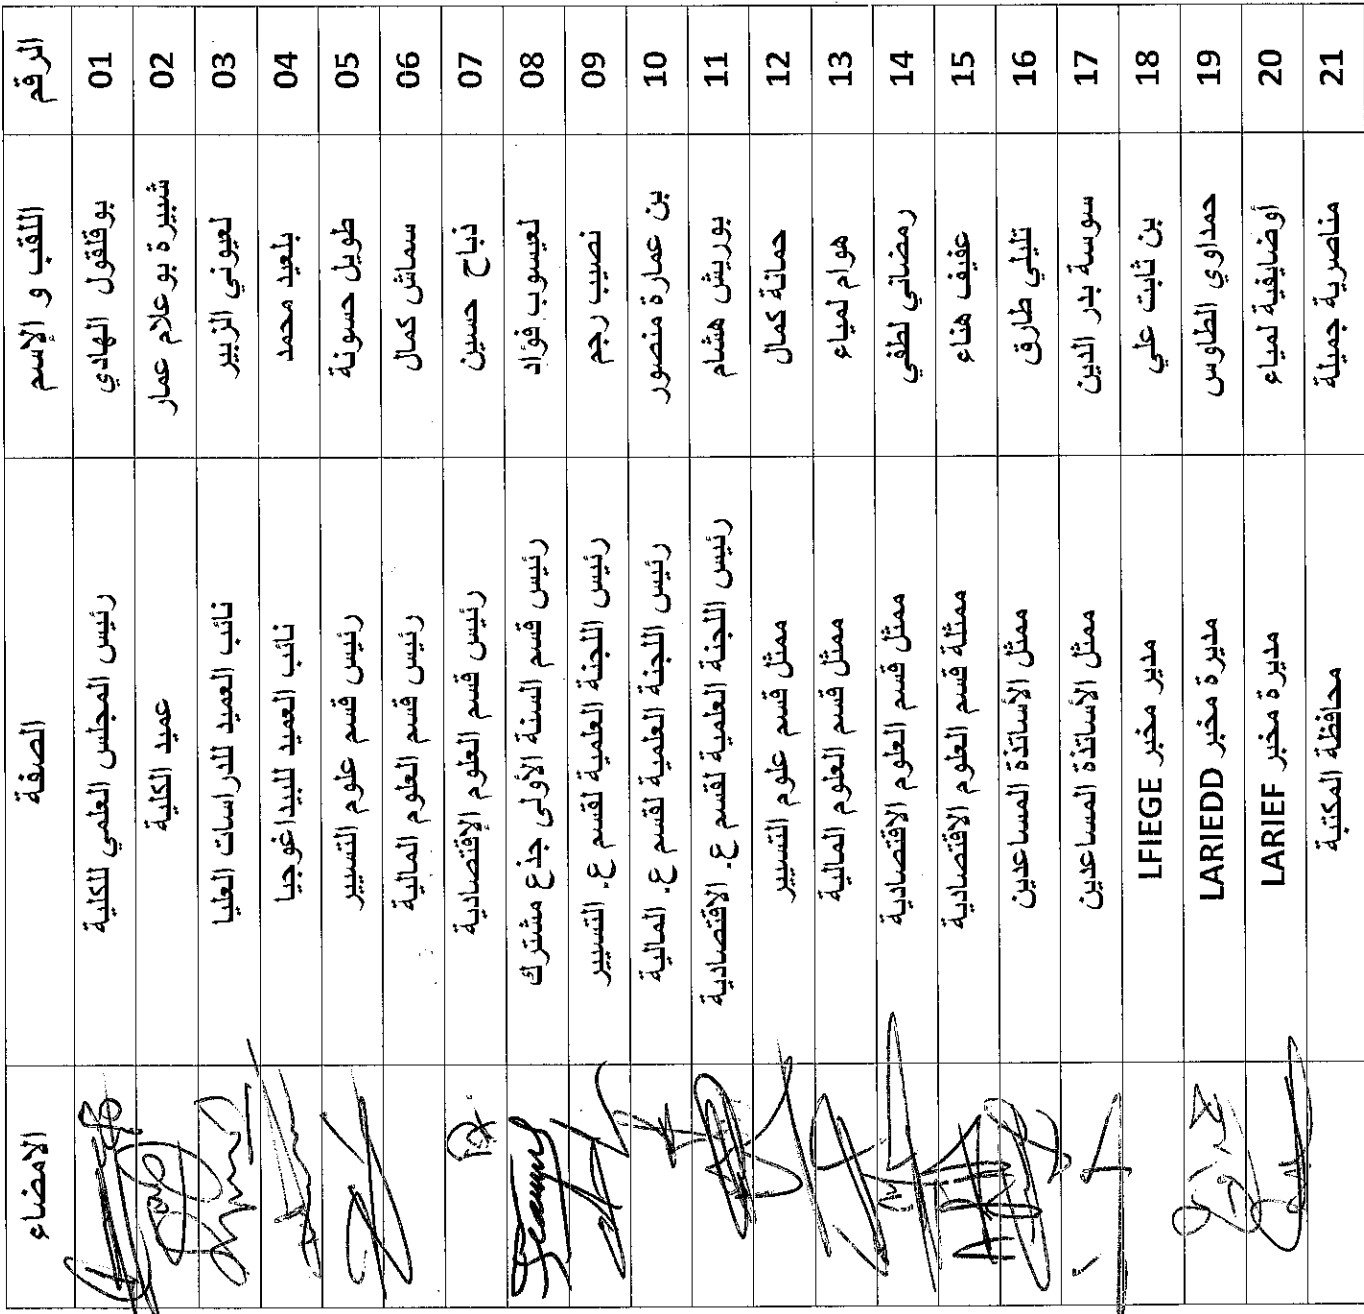 الرقم اللقب و الإسم الصفة الامضاء
01 بوقلقول الهادي رئيس المجلس العلمي للكلية
02 شبيرة بوعلام عمار عميد الكلية
03 لعيوني الزبير نائب العميد للدراسات العليا
04 بلعيد محمد نائب العميد للبيداغوجيا
05 طويل حسونة رئيس قسم علوم التسيير
06 سماش كمال رئيس قسم العلوم المالية
07 ذباح حسين رئيس قسم العلوم الإقتصادية
08 لعيسوب فؤاد رئيس قسم السنة الأولى جذع مشترك
09 نصيب رجم رئيس اللجنة العلمية لقسم ع. التسيير
10 بن عمارة منصور رئيس اللجنة العلمية لقسم ع. المالية
11 بوريش هشام رئيس اللجنة العلمية لقسم ع. الاقتصادية
12 حمانة كمال ممثل قسم علوم التسيير
13 هوام لمياء ممثل قسم العلوم المالية
14 رمضاني لطفي ممثل قسم العلوم الاقتصادية
15 عفيف هناء ممثلة قسم العلوم الاقتصادية
16 تليلي طارق ممثل الأساتذة المساعدين
17 سوسة بدر الدين ممثل الأساتذة المساعدين
18 بن ثابت علي مدير مخبر LFIEGE
19 حمداوي الطاوس مديرة مخبر LARIEDD
20 أوضايفية لمياء مديرة مخبر LARIEF
21 مناصرية جميلة محافظة المكتبة